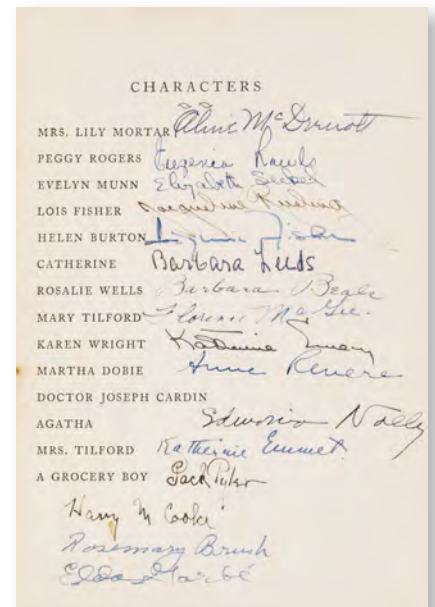 CHARACTERS
MRS. LILY MORTAR Aline McDermott
PEGGY ROGERS Eugenia Rawls
EVELYN MUNN Elizabeth Seckel
LOIS FISHER Jacqueline Rusling
HELEN BURTON Lynne Fisher
CATHERINE Barbara Leeds
ROSALIE WELLS Barbara Beals
MARY TILFORD Florence McGee
KAREN WRIGHT Katherine Emery
MARTHA DOBIE Anne Revere
DOCTOR JOSEPH CARDIN
AGATHA Edmonia Nolley
MRS. TILFORD Katherine Emmet
A GROCERY BOY Jack Tyler
Harry M Cooke
Rosemary Brush